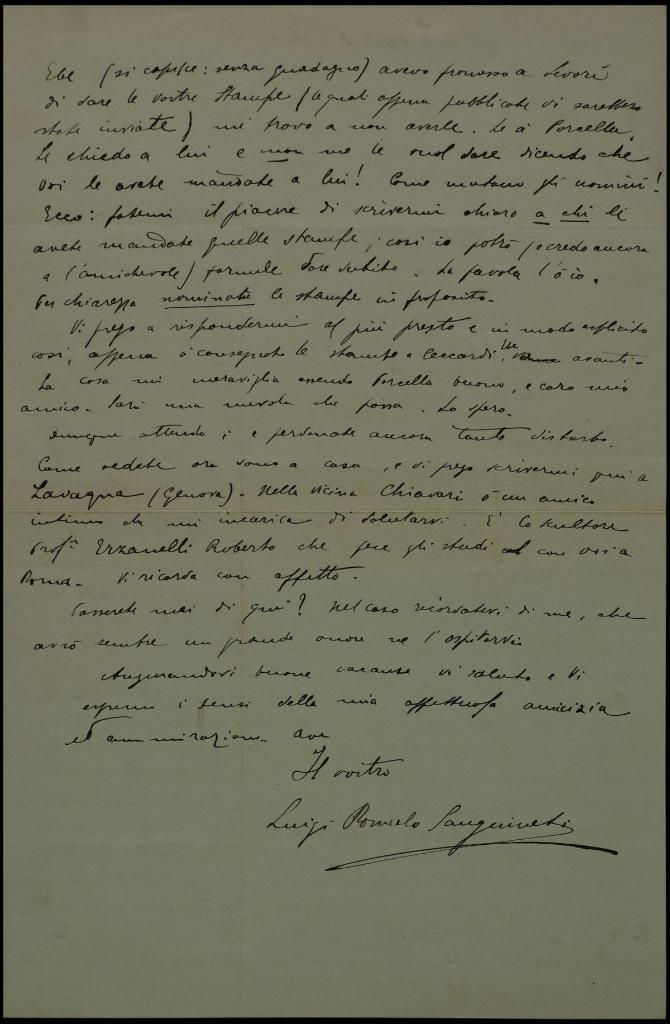 Ebe (si capisce: senza guadagno) avevo promosso a
di dare le vostre stampe (le quali appena pubblicate vi sarebbero
state inviate) mi trovo a non averle. Le à Porcella.
Le chiedo a lui e non me le vuol dare dicendo che
voi le avete mandate a lui! Come mutano gli uomini!
Ecco: fatemi il piacere di scrivermi chiaro a chi le
avete mandate quelle stampe; così io potrò (e credo ancora
a l'amichevole) farmele dare subito. La favola l'ò io.
Per chiarezza nominate le stampe in proposito.
Vi prego a rispondermi al più presto e in modo esplicito
così, appena ò consegnato le stampe a Ceccardi, avanti.
La cosa mi meraviglia essendo Porcella buono, e caro mio
amico. Sarà una nuvola che passa. Lo spero.
Dunque attendo; e perdonate ancora tanto disturbo.
Come vedete ora sono a casa, e vi prego scrivermi qui a
Lavagna (Genova). Nella vicina Chiavari ò un amico
intimo che mi incarica di salutarvi. E' lo scultore
Prof. Erzanelli Roberto che fece gli studi con voi a
Roma. Vi ricorda con affetto.
Passerete mai di qui? Nel caso ricordatevi di me, che
avrò sempre un grande onore ne l'ospitarvi.
Augurandovi buone vacanze vi saluto e vi
esprimo i sensi della mia affettuosa amicizia
ed ammirazione. Ave
Il vostro
Luigi Romolo Sanguineti